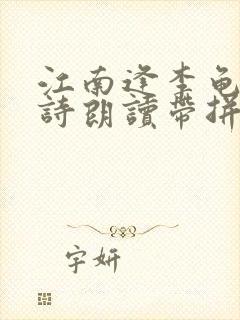 江南逢李龟
詩朗讀帶拼
字妍